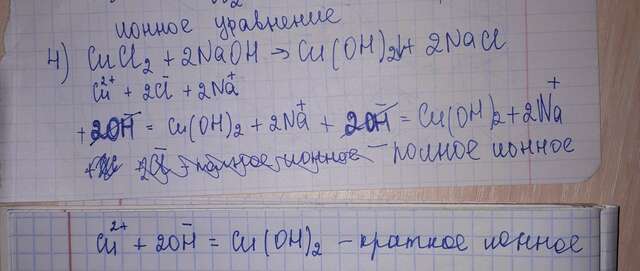 ионное уравнение
4) CuCl₂ + 2NaOH → Cu(OH)₂↓ + 2NaCl
Cu²⁺ + 2Cl⁻ + 2Na⁺
+ 2OH⁻ = Cu(OH)₂ + 2Na⁺ + 2OH⁻ = Cu(OH)₂ + 2Na⁺
+ 2Cl⁻ – полное ионное – полное ионное
Cu²⁺ + 2OH⁻ = Cu(OH)₂ – краткое ионное